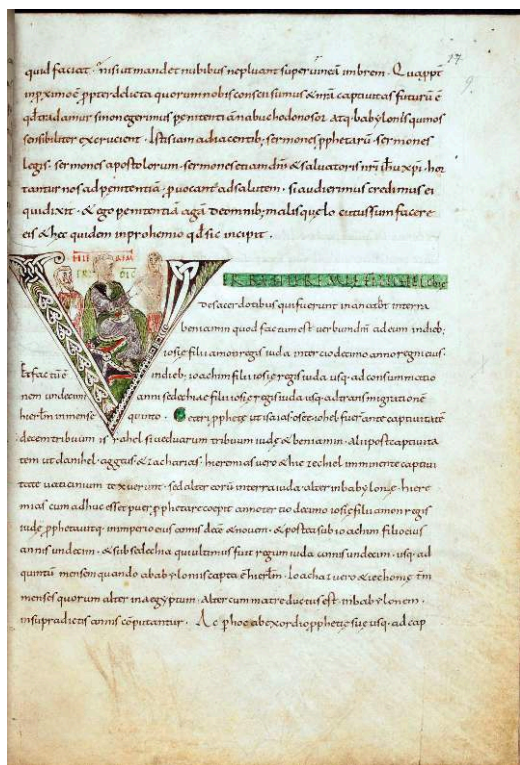 17
9
quid faciat · nisi ut mandet nubibus ne pluant super vineā imbrem · Quappt̄
inpximo ē ppter delicta quorum nobis consensimus & nrā captivitas futurū ē
qđ tradamur si non egerimus penitentiā nabuchodonosor atq; babylonis qui nos
sensibiliter excrucient · Istis iam adiacentib; sermones pphetarū · sermones
legis · sermones apostolorum · sermones etiam dn̄i & salvatoris nrī ih̄u xpī · hor
tantur nos ad penitentiā · pvocant ad salutem · si audierimus credimus ei
qui dixit · & ego penitentiā agā de omnib; malis que locutus sum facere
eis & hec quidem in prohemio qđ sic incipit ·
HIE REM
de sacerdotibus qui fuerunt in anatoth in terra
beniamin quod factum est verbum dn̄i ad eum in dieb;
iosię filii amon regis iuda · tertio decimo anno regni eius ·
Et factū ē in dieb; ioachim filii iosię regis iuda usq; ad consummatio
nem undecim anni sedechiae filii iosię regis iuda usq; ad transmigrationē
hierłm in mense quinto · Ceteri pphete ut isaias · osee · iohel fuer̄ ante captivitatē
decem tribuum israhel sive duarum tribuum iudę & beniamin · alii post captivita
tem ut danihel · aggeus & zacharias · hieremias vero & hiezechiel imminente captivi
tate vaticinium texuerunt · sed alter eorū in terra iuda · alter in babylone · hiere
mias cum adhuc esset puer · pphetare coepit anno tertio decimo iosię filii amon regis
iudę · pphetavitq; in imperio eius annis decē & novem · & postea sub ioachim filio eius
annis undecim · & sub sedechia qui ultimus fuit regum iuda annis undecim · usq; ad
quintū mensem quando a babyloniis capta ē hierłm · Ioachaz vero & iechonię tm̄
menses quorum alter in aegyptum · alter cum matre ductus est in babylonem ·
in supradictis annis cōputantur · Ac p hoc ab exordio pphetię suę usq; ad cap